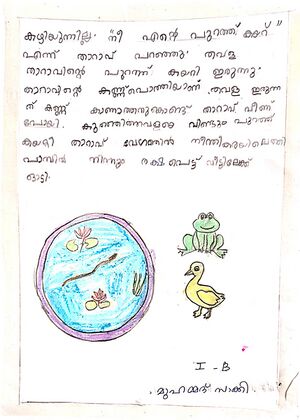 കഴിയുന്നില്ല. "നീ എന്റെ പുറത്ത് കയറ്"
എന്ന് താറാവ് പറഞ്ഞു. തവള
താറാവിന്റെ പുറത്ത് കയറി ഇരുന്നു.
താറാവിന്റെ കണ്ണ് പൊത്തിയാണ് തവള ഇരുന്ന
ത് കണ്ണ് കാണാത്തതുകൊണ്ട് താറാവ് വീണ്
പോയി. വീണ്ടും പുറത്ത്
കയറി താറാവ് വേഗത്തിൽ നീന്തി കരയിലെത്തി
പാമ്പിൽ നിന്നും രക്ഷപെട്ട് വീട്ടിലേക്ക്
ഓടി.
I - B
മുഹമ്മദ് സാക്കി